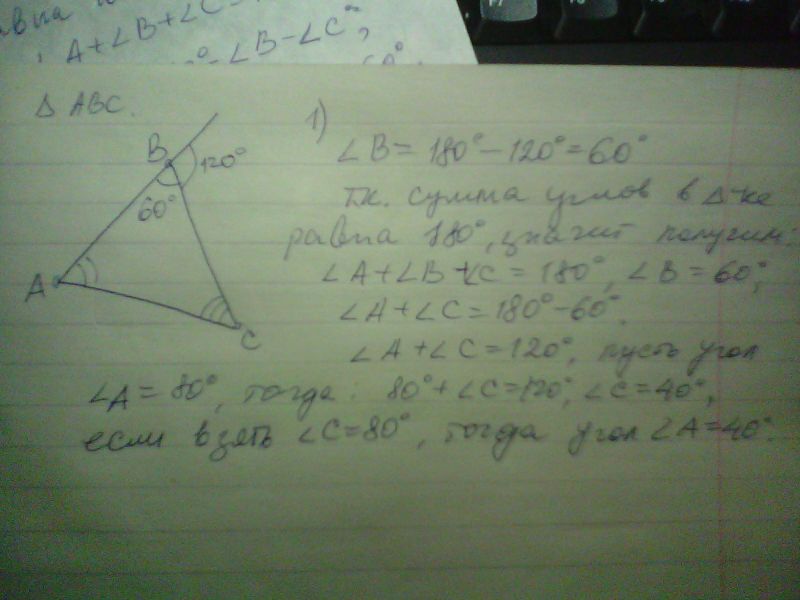 равна
A+∠B+∠C
°-∠B-∠C°,
60°
Δ ABC.
B
120°
60°
A
C
1)
∠B = 180°-120°=60°
т.к. сумма углов в Δ-ке
равна 180°, значит получим:
∠A+∠B+∠C = 180°, ∠B = 60°,
∠A+∠C=180°-60°.
∠A+∠C=120°, пусть угол
∠A = 80°, тогда: 80°+∠C=120°, ∠C=40°,
если взять ∠C=80°, тогда угол ∠A=40°.